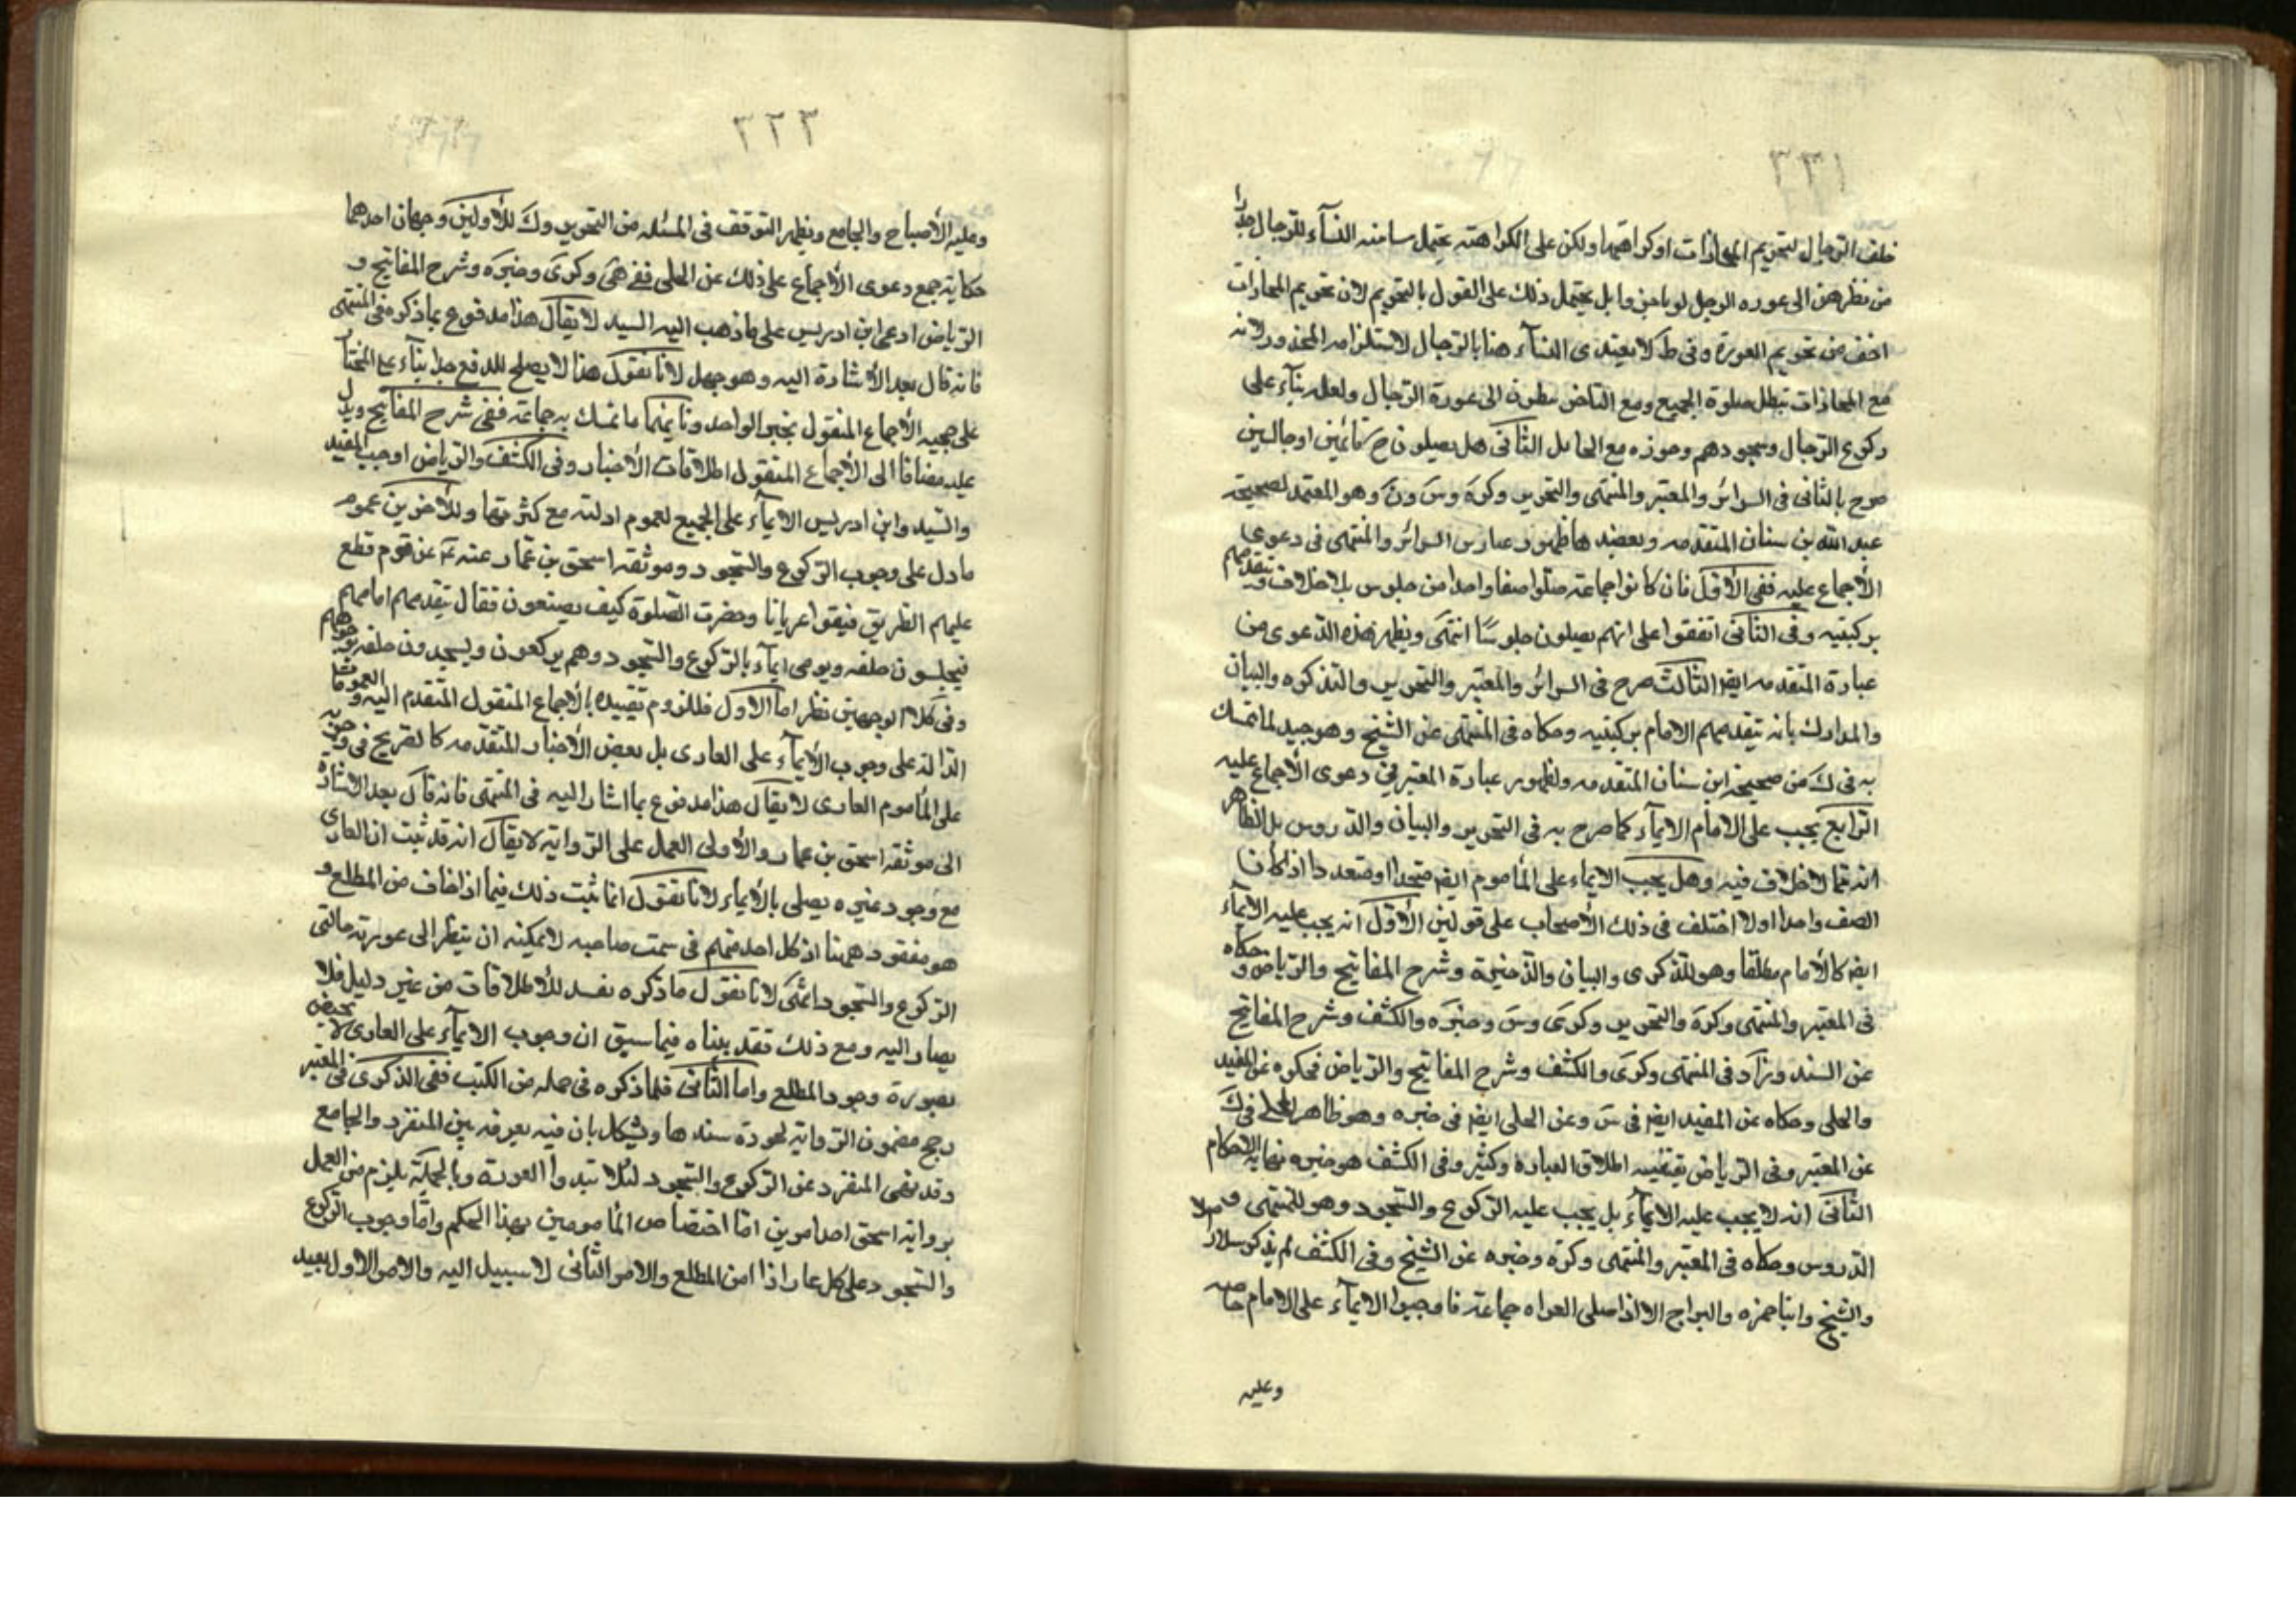 ٣٣١
خلف الرجال لتحريم المحاذات او كراهتها ولكن على الكراهته يحتمل سامته النسآء للرجال حذرا
من نظرهن الى عوره الرجل لو باخروا بل يحتمل ذلك على القول بالتحريم لان تحريم المحاذات
اخف من تحريم العورة وفى ط لا يقتدى النسآء هنا بالرجال لاستلزامه المحذور لانه
مع المحاذات تبطل صلوة الجميع ومع التاخر ينظرن الى عورة الرجال ولعله بنآء على
ركوع الرجال وسجودهم وجوزه مع الحايل الثانى هل يصلون ح قائمين او جالسين
صرح بالثانى فى السرائر والمعتبر والمنتهى والتحرير وكره وس ون وهو المعتمد لصحيحة
عبد الله بن سنان المتقدمه ويعضدها ظهور عبارتى السرائر والمنتهى فى دعوى
الأجماع عليه ففى الأول فان كانوا جماعة صلوا صفا واحدا من جلوس بلا خلاف يتقدمهم
بركبتيه وفى الثانى اتفقوا على انهم يصلون جلوسًا انتهى ويظهر هذه الدعوى من
عبارة المتقدمه ايضا الثالث صرح فى السرائر والمعتبر والتحرير والتذكره والبيان
والمدارك بانه يتقدمهم الامام بركبتيه وحكاه فى المنتهى عن الشيخ وهو جيد لما تمسك
به فى ك من صحيحة ابن سنان المتقدمه ولظهور عبارة المعتبر فى دعوى الأجماع عليه
الرابع يجب على الامام الايمآء كما صرح به فى التحرير والبيان والدروس بل الظاهر
انه مما لا خلاف فيه وهل يجب الايماء على المأموم ايضا متحدا او متعددا اذا كان
الصف واحدا اولا اختلف فى ذلك الأصحاب على قولين الأول انه يجب عليه الايمآء
ايضا كالأمام مطلقا وهو للذكرى والبيان والذخيرة وشرح المفاتيح والرياض وحكاه
فى المعتبر والمنتهى وكرة والتحرير وكرى وس وخيره والكشف وشرح المفاتيح
عن السيد وزاد فى المنتهى وكرى والكشف وشرح المفاتيح والرياض فحكوه عن المفيد
والحلى وحكاه عن المفيد ايضا فى س وعن الحلى ايضا فى خيره وهو ظاهر المحكى فى ك
عن المعتبر وفى الرياض يقتضيه اطلاق العبارة وكثير وفى الكشف هو خيره نهاية الاحكام
الثانى انه لا يجب عليه الايمآء بل يجب عليه الركوع والسجود وهو للمنتهى و
الدروس وحكاه فى المعتبر والمنتهى وكره وخيره عن الشيخ وفى الكشف لم يذكر سلار
والشيخ وابنا حمزه والبراج الا اذا صلى العراه جماعة فاوجبوا الايمآء على الامام خاصه
وعليه
٣٣٢
وعليه الأصباح والجامع ويظهر التوقف فى المسئله من التحرير وك للأولين وجهان احدهما
حكاية جمع دعوى الأجماع على ذلك عن الحلى ففى هى وكرى وخيره وشرح المفاتيح و
الرياض ادعى ابن ادريس على ما ذهب اليه السيد لا يقال هذا مدفوع بما ذكره فى المنتهى
فانه قال بعد الأشارة اليه وهو جهل لانا نقول هذا لا يصلح للدفع جدا بنآء على المختار
على حجيه الأجماع المنقول بخبر الواحد وثانيهما ما تمسك به جماعة ففى شرح المفاتيح ويدل
عليه مضافا الى الأجماع المنقول اطلاقات الأخبار وفى الكشف والرياض اوجب المفيد
والسيد وابن ادريس الايمآء على الجميع لعموم ادلته مع كثرتها وللأخرين عموم
ما دل على وجوب الركوع والسجود وموثقه اسحق بن عمار عنه ع عن قوم قطع
عليهم الطريق فبقوا عريانا وحضرت الصلوة كيف يصنعون فقال يتقدمهم امامهم
فيجلسون خلفه ويومى ايمآء بالركوع والسجود وهم يركعون ويسجدون خلفه بوجوههم
وفى كلا الوجهين نظر اما الأول فللزوم تقييده بالأجماع المنقول المتقدم اليه والعمومات
الدالة على وجوب الأيمآء على العارى بل بعض الأخبار المتقدمه كالصريح فى
على المأموم العارى لا يقال هذا مدفوع بما اشار اليه فى المنتهى فانه قال بعد الاشارة
الى موثقه اسحق بن عمار والأولى العمل على الرواية لا يقال انه قد ثبت ان العارى
مع وجود غيره يصلى بالأيماء لانا نقول انما ثبت ذلك فيما اذا خاف من المطلع و
هو مفقود ههنا اذ كل احد منهم فى سمت صاحبه لا يمكنه ان ينظر الى عورته حالتى
الركوع والسجود انتهى لانا نقول ما ذكره تقييد للأطلاقات من غير دليل فلا
يصار اليه ومع ذلك فقد بيناه فيما سبق ان وجوب الايمآء على العارى لا يختص
بصورة وجود المطلع واما الثانى فلما ذكره فى جمله من الكتب ففى الذكرى فى المعتبر
رجح مضمون الرواية لجودة سندها ويشكل بان فيه تفرقه بين المنفرد والجامع
وقد نهى المنفرد عن الركوع والسجود لئلا تبدوا العورة وبالجملة يلزم من العمل
برواية اسحق احد امرين اما اختصاص المأمومين بهذا الحكم واما وجوب الركوع
والسجود على كل عار اذا امن المطلع والامر الثانى لا سبيل اليه والامر الاول بعيد